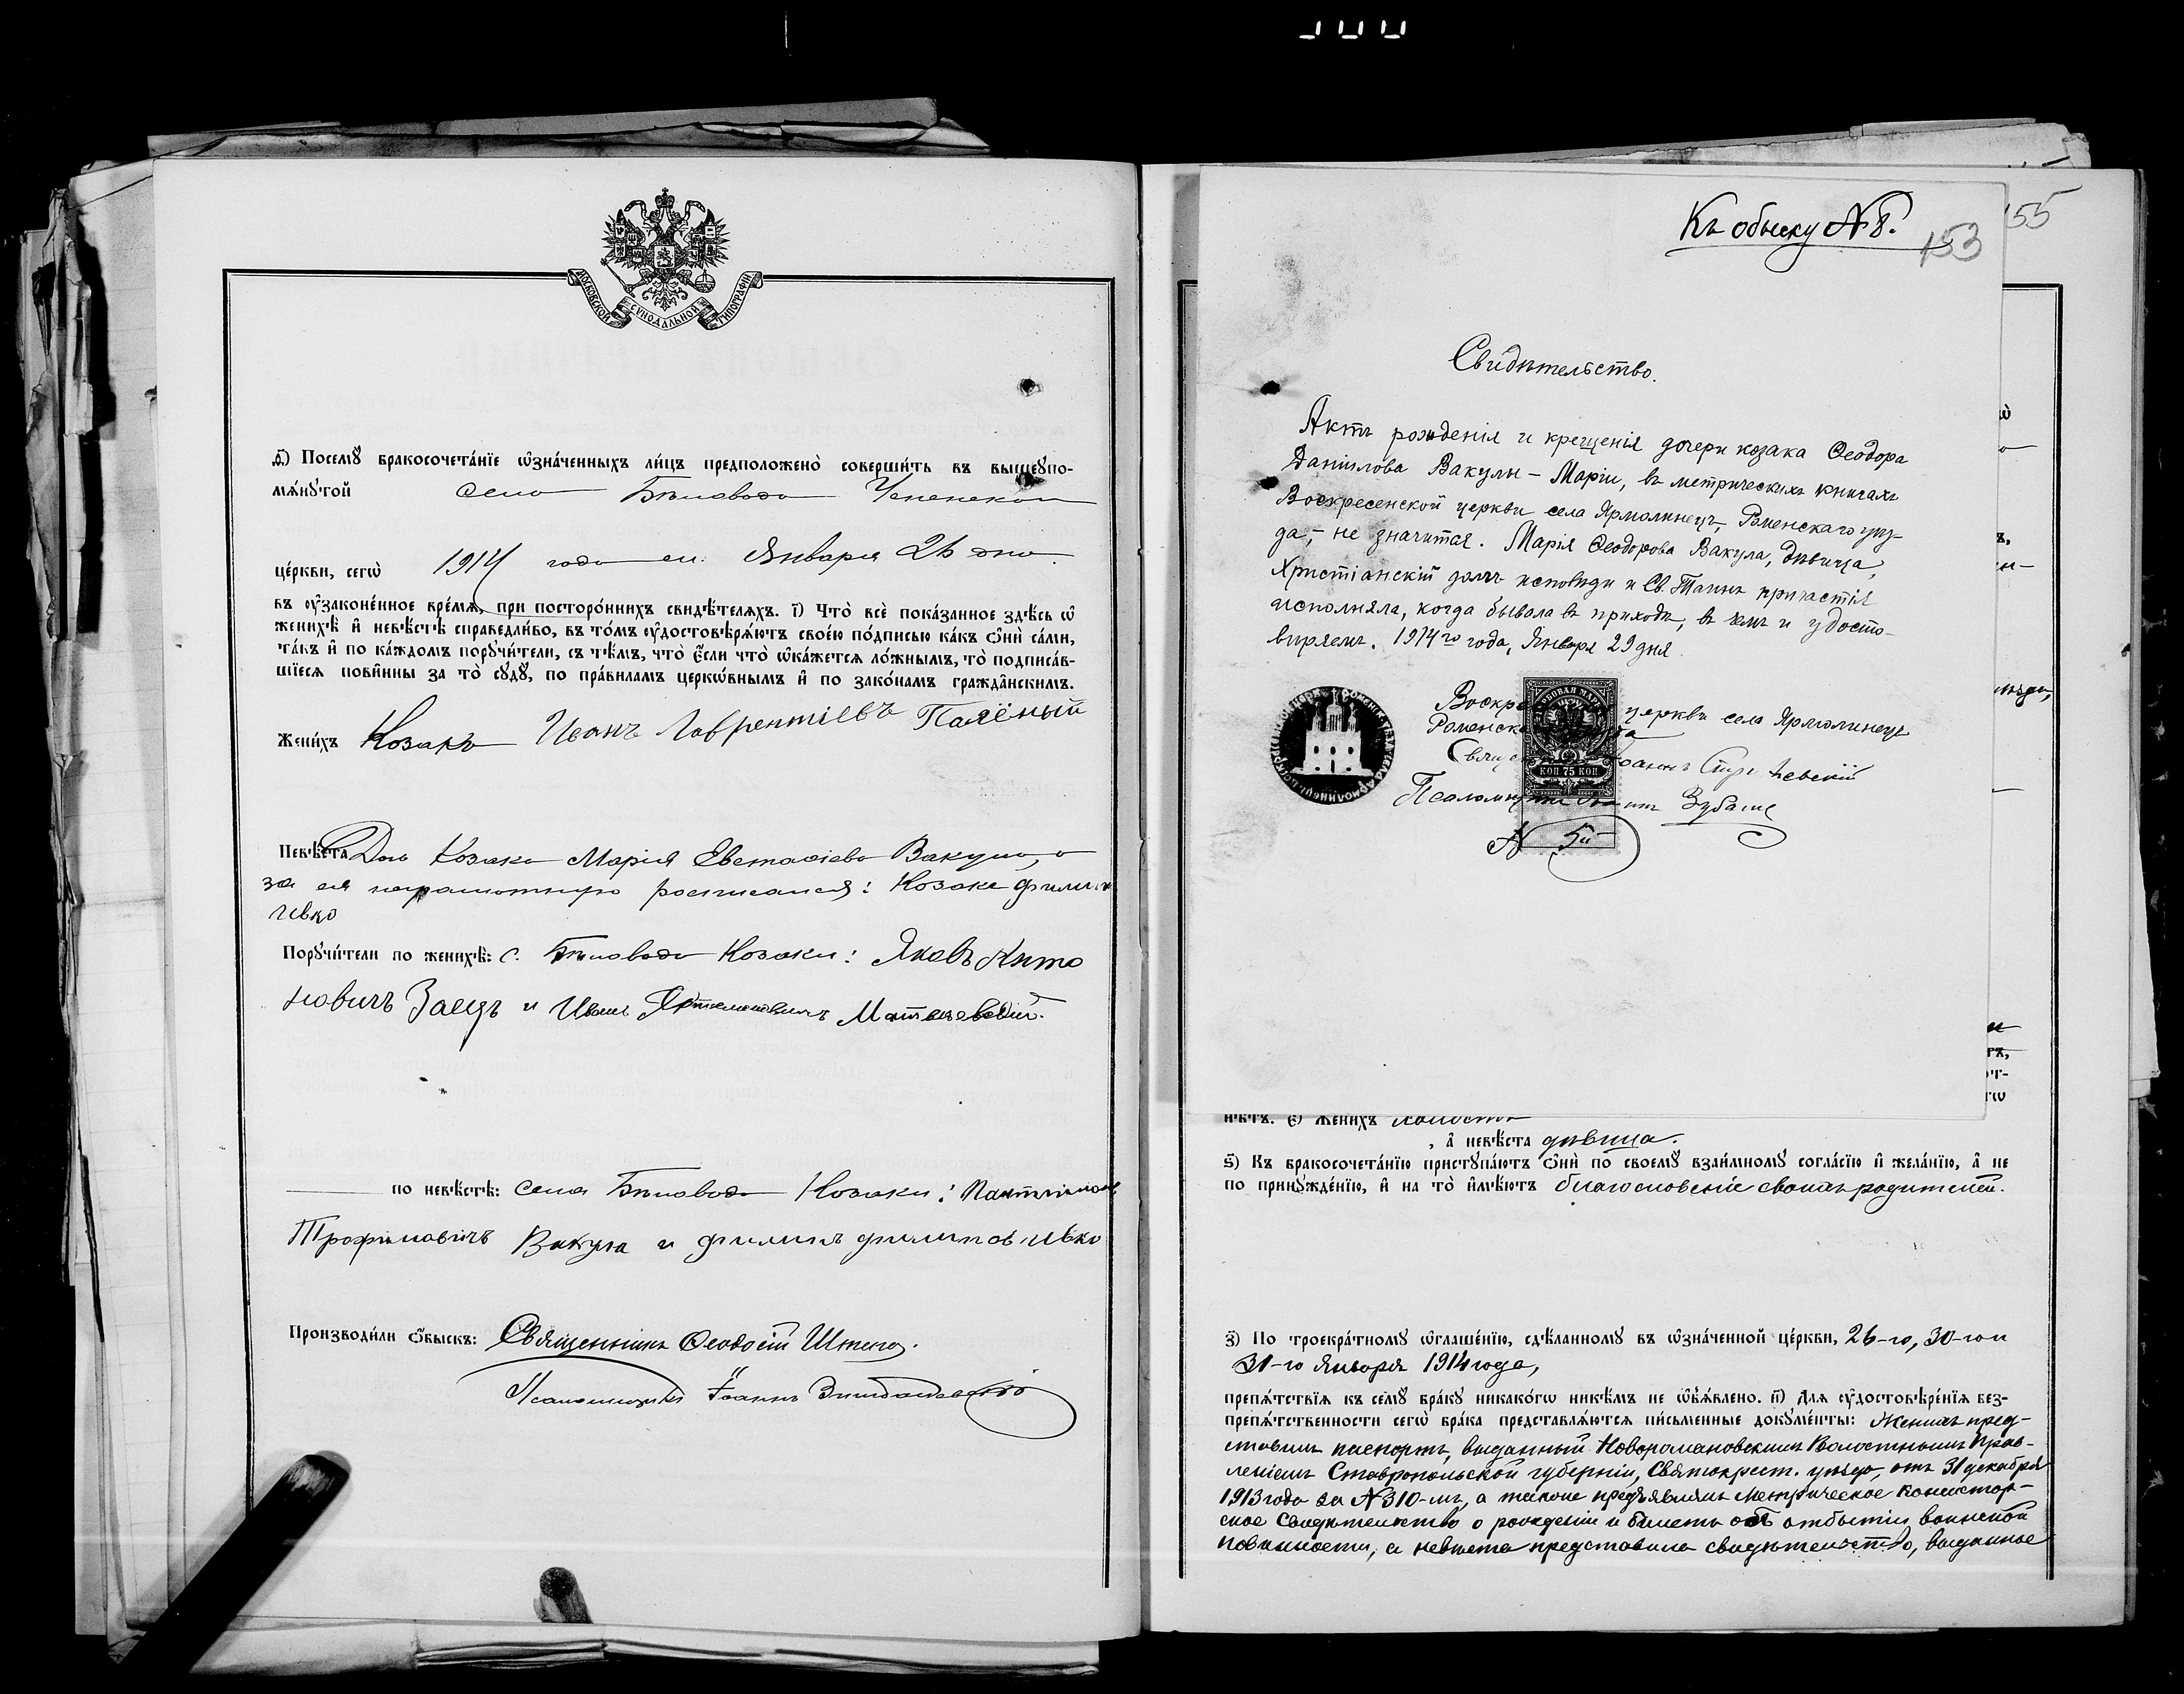 МОСКОВСКОЙ СУНОДАЛЬНОЙ ТИПОГРАФІИ
д҃) Посемꙋ бракосочета́нїе ѡ҆зна́ченныхъ ли́цъ предположено̀ соверши́ть въ вышеꙋпо-
мѧ́нꙋтой село Бѣловода
це́ркви, сегѡ̀ 1914 года м. Января 26 дня
въ ᲂу҆законе́нное вре́мѧ, при посторо́ннихъ свидѣ́телѧхъ. і҃) Что̀ всѐ пока́занное здѣ́сь ѡ҆
женихѣ̀ и҆ невѣ́стѣ справедли́во, въ то́мъ ᲂу҆достовѣрѧ́ютъ свое́ю по́дписью ка́къ ѻ҆нѝ са́ми,
та́къ и҆ по ка́ждомъ порꙋчи́тели, съ тѣ́мъ, что̀ є҆́сли что̀ ѡ҆ка́жетсѧ ло́жнымъ, то̀ подписа́в-
шїесѧ пови́нны за то̀ сꙋдꙋ̀, по пра́виламъ церко́внымъ и҆ по зако́намъ гражда́нскимъ.
Жени́хъ Козакъ Иванъ Лаврентіевъ Палёный
Невѣ́ста Дочь Козака Марія Евстафіева Вакула, а
за ея неграмотную росписался: Козакъ Филипъ
Ивко
Порꙋчи́тели по женихѣ̀: с. Бѣловода Козаки: Яковъ Анто
новичъ Заецъ и Иванъ
по невѣ́стѣ: села Бѣловода Козаки: Пантелимонъ
Трофимовичъ Вакула и Филипъ Филипов Ивко
Производи́ли ѻ҆́быскъ: Священникъ Ѳеодосій
Псаломщикъ Іоаннъ
Къ обыску № 8.
153
155
Свидѣтельство.
Актъ рожденія и крещенія дочери козака Ѳеодора
Даніилова Вакулы – Маріи, въ метрическихъ книгахъ
Воскресенской церкви села Ярмолинецъ, Роменскаго уѣз-
да, – не значится. Марія Ѳеодорова Вакула, дѣвица,
Христіанскій долгъ исповѣди и Св. Таинъ причастія
исполняла, когда бывала въ приходѣ, въ чемъ и удосто-
вѣряемъ. 1914го года, Января 29 дня.
Воскре церкви села Ярмолинецъ
Роменска
Свящ
Псаломщикъ Зубаше
КОП 75 КОП
№ 5й
нѣ́тъ. є҃) Жени́хъ холостъ
, а҆ невѣ́ста дѣвица.
ѕ҃) Къ бракосочета́нїю пристꙋпа́ютъ ѻ҆нѝ по своемꙋ̀ взаи́мномꙋ согла́сїю и҆ жела́нїю, а҆ не
по принꙋжде́нїю, и҆ на то̀ и҆мѣ́ютъ благословеніе своихъ родителей.
з҃) По троекра́тномꙋ ѡ҆глаше́нїю, сдѣ́ланномꙋ въ ѡ҆зна́ченной це́ркви, 26-го, 30-го и
31-го Января 1914 года,
препѧ́тствїѧ къ семꙋ̀ бра́кꙋ никако́гѡ никѣ́мъ не ѡ҆б̾ѧ́влено. и҃) Длѧ ᲂу҆достовѣре́нїѧ без-
препѧ́тственности сегѡ̀ бра́ка представлѧ́ютсѧ пи́сьменные докꙋме́нты: Женихъ пред-
ставилъ паспортъ, выданный Новоромановскимъ Волостнымъ Прав-
леніемъ Ставропольской губерніи, Святокрест. уѣзда, отъ 31 декабря
1913 года за № 310-мъ, а также предъявилъ Метрическое Консистор-
ское Свидѣтельство о рожденіи и билетъ объ отбытіи воинской
повинности, а невѣста представила свидѣтельство, выданное